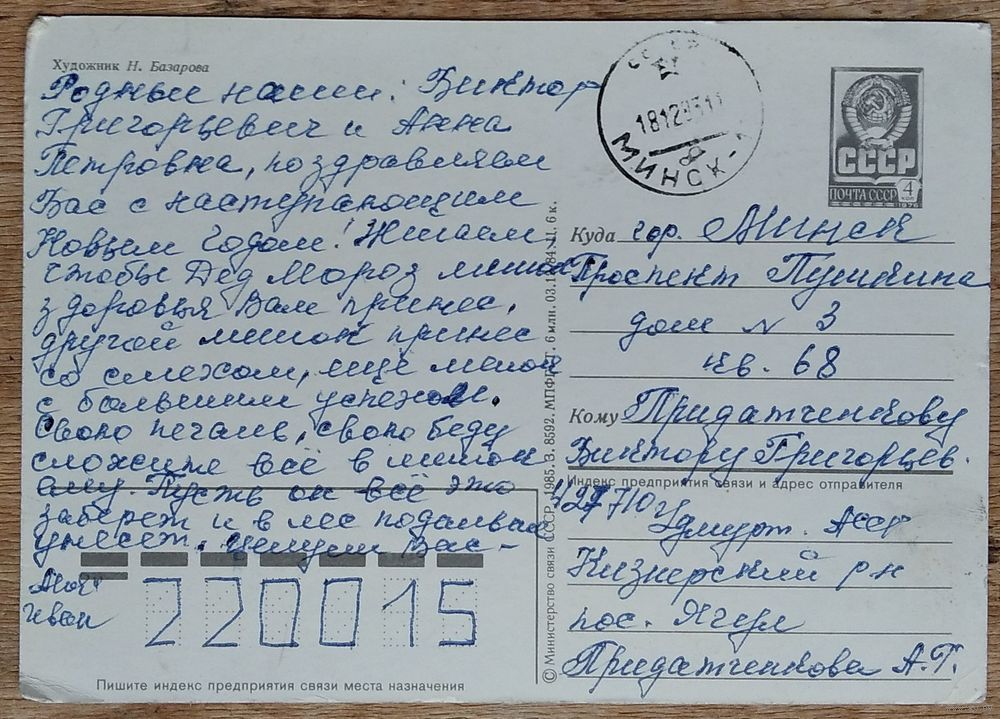 Художник Н. Базарова
Родные наши: Виктор
Григорьевич и Анна
Петровна, поздравляем
Вас с наступающим
Новым годом! Желаем,
чтобы Дед Мороз мешок
здоровья Вам принес,
другой мешок принес
со смехом, ещё мешок
с большим успехом.
Свою печаль, свою беду
сложите всё в мешок
ему. Пусть он всё это
заберет и в лес подальше
унесет. Целуем Вас –
Иван
220015
Пишите индекс предприятия связи места назначения
© Министерство связи СССР, 1985. З. 8592. МПФГ. 6 млн. 03.1 6 к.
СССР
18128311
МИНСК
СССР
ПОЧТА СССР 4 КОП
1976
Куда гор. Минск
Проспект Пушкина
дом N 3
кв. 68
Кому Придатченкову
Виктору Григорьев.
Индекс предприятия связи и адрес отправителя
427710 Удмурт. АССР
Кизнерский р-н
пос. Ягул
Придатченкова А.Г.